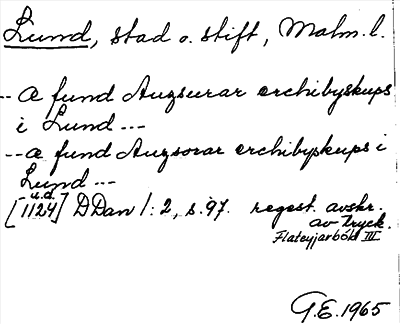 Lund, stad o. stift, Malm. l.
-- a fund Auzsurar erchibyskups
i Lund ---
-- a fund Auzsorar erchibyskups i
Lund ---
u.d.
[1124] DDan 1:2, s. 97. regest. avskr.
av tryck.
Flateyjarbók III
G.E. 1965